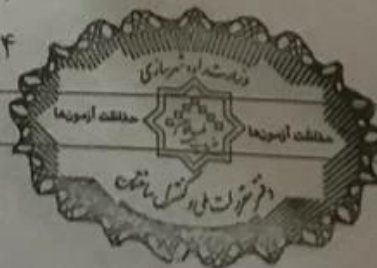 ۴
وزارت راه و شهرسازی
حفاظت آزمون‌ها
حفاظت آزمون‌ها
دفتر مقررات ملی و کنترل ساختمان